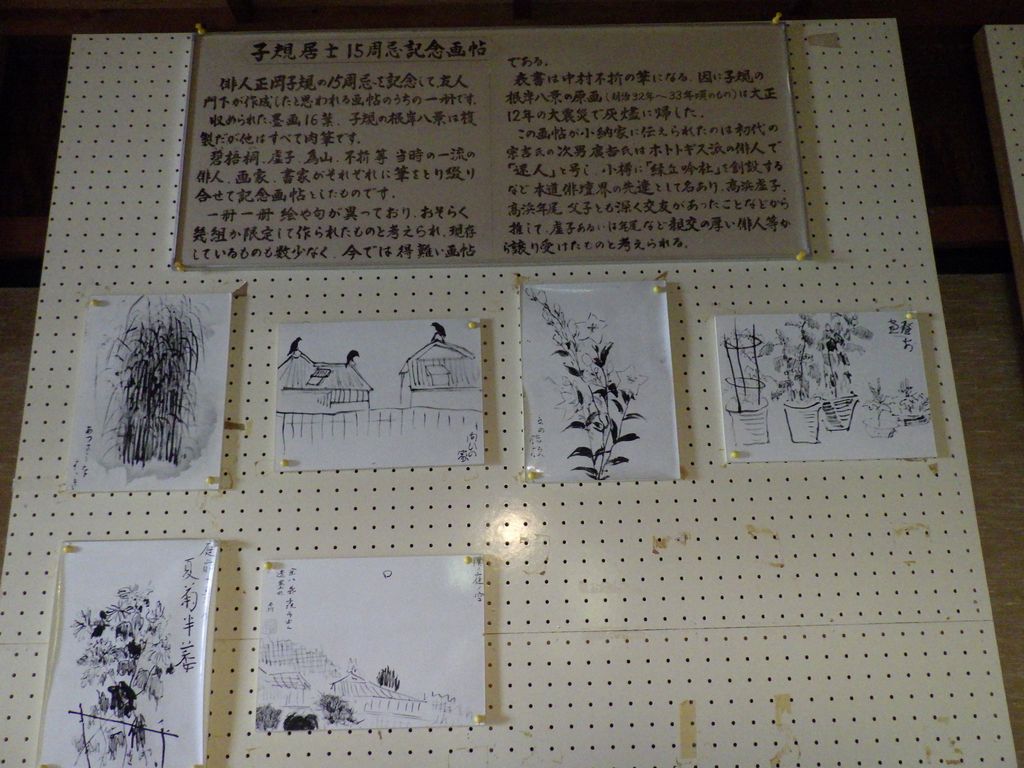 子規居士15周忌記念画帖
俳人正岡子規の15周忌を記念して友人
門下が作成したと思われる画帖のうちの一冊です。
収められた墨画16葉、子規の根岸八景は複
製だが他はすべて肉筆です。
碧梧桐、虚子、為山、不折等 当時の一流の
俳人、画家、書家がそれぞれに筆をとり綴り
合せて記念画帖としたものです。
一冊一冊 絵や句が異っており、おそらく
幾組か限定して作られたものと考えられ、現存
しているものも数少なく、今では得難い画帖
である。
表書は中村不折の筆になる。因に子規の
根岸八景の原画(明治32年〜33年頃のもの)は大正
12年の大震災で灰燼に帰した。
この画帖が小納家に伝えられたのは初代の
宗吉氏の次男廣吉氏はホトトギス派の俳人で
「迷人」と号し、小樽に「緑丘吟社」を創設する
など本道俳壇界の先達として名あり、高浜虚子、
高浜年尾 父子とも深く交友があったことなどから
推して、虚子あるいは年尾など親交の厚い俳人等か
ら譲り受けたものと考えられる。
向ひの
家
夏菊半ば萎